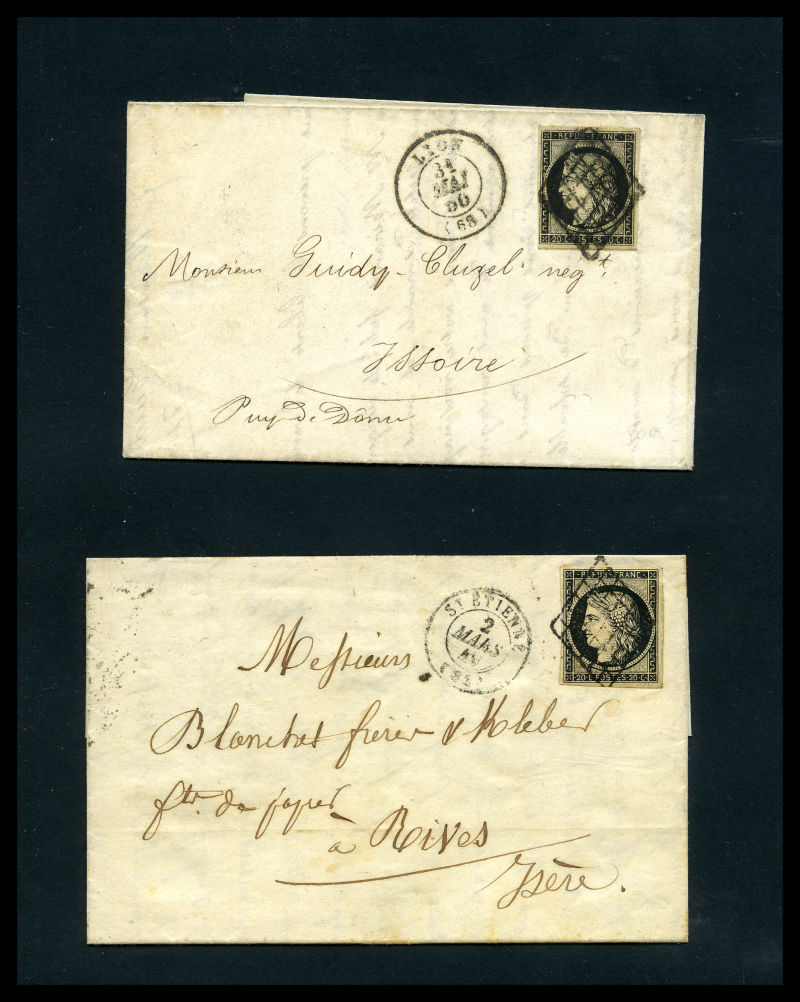 LYON
31
MAI
50
(68)
REPUB. FRANC.
20 C. POSTES 20 C.
Monsieur Guidy-Cluzel negt.
Issoire
Puy-de-Dôme
ST ETIENNE
2
MARS
REPUB. FRANC.
20 C. POSTES 20 C.
Messieurs
Blanchet frères & Kleber
ftn. de papier
à Rives
Isère.